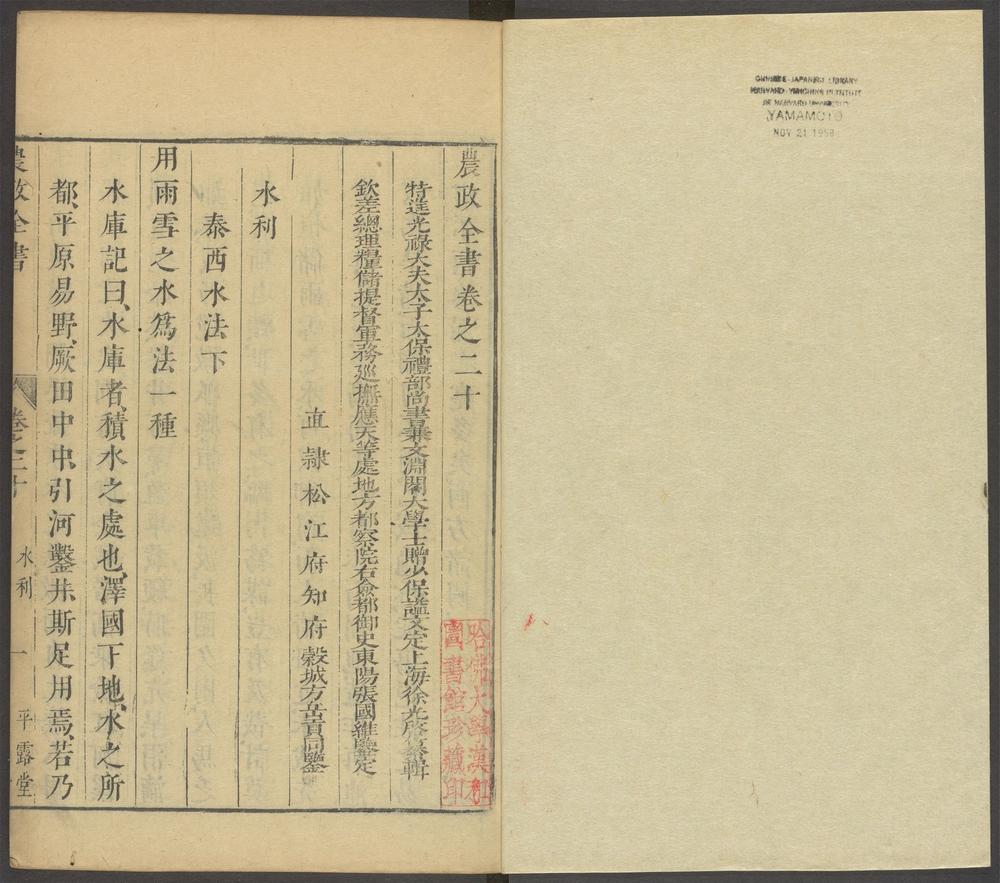 CHINESE-JAPANESE LIBRARY
HARVARD-YENCHING INSTITUTE
OF HARVARD UNIVERSITY
YAMAMOTO
NOV 21 1958
農政全書卷之二十
特進光祿大夫太子太保禮部尚書兼文淵閣大學士贈少保謚文定上海徐光啓纂輯
欽差總理糧儲提督軍務巡撫應天等處地方都察院右僉都御史東陽張國維鑒定
直隸松江府知府穀城方岳貢同鑒
水利
泰西水法下
用雨雪之水爲法一種
水庫記曰、水庫者、積水之處也、澤國下地、水之所
都、平原易野、厥田中中、引河鑿井、斯足用焉、若乃
農政全書 卷之二十 水利 一 平露堂
哈佛大學漢和
圖書館珍藏印